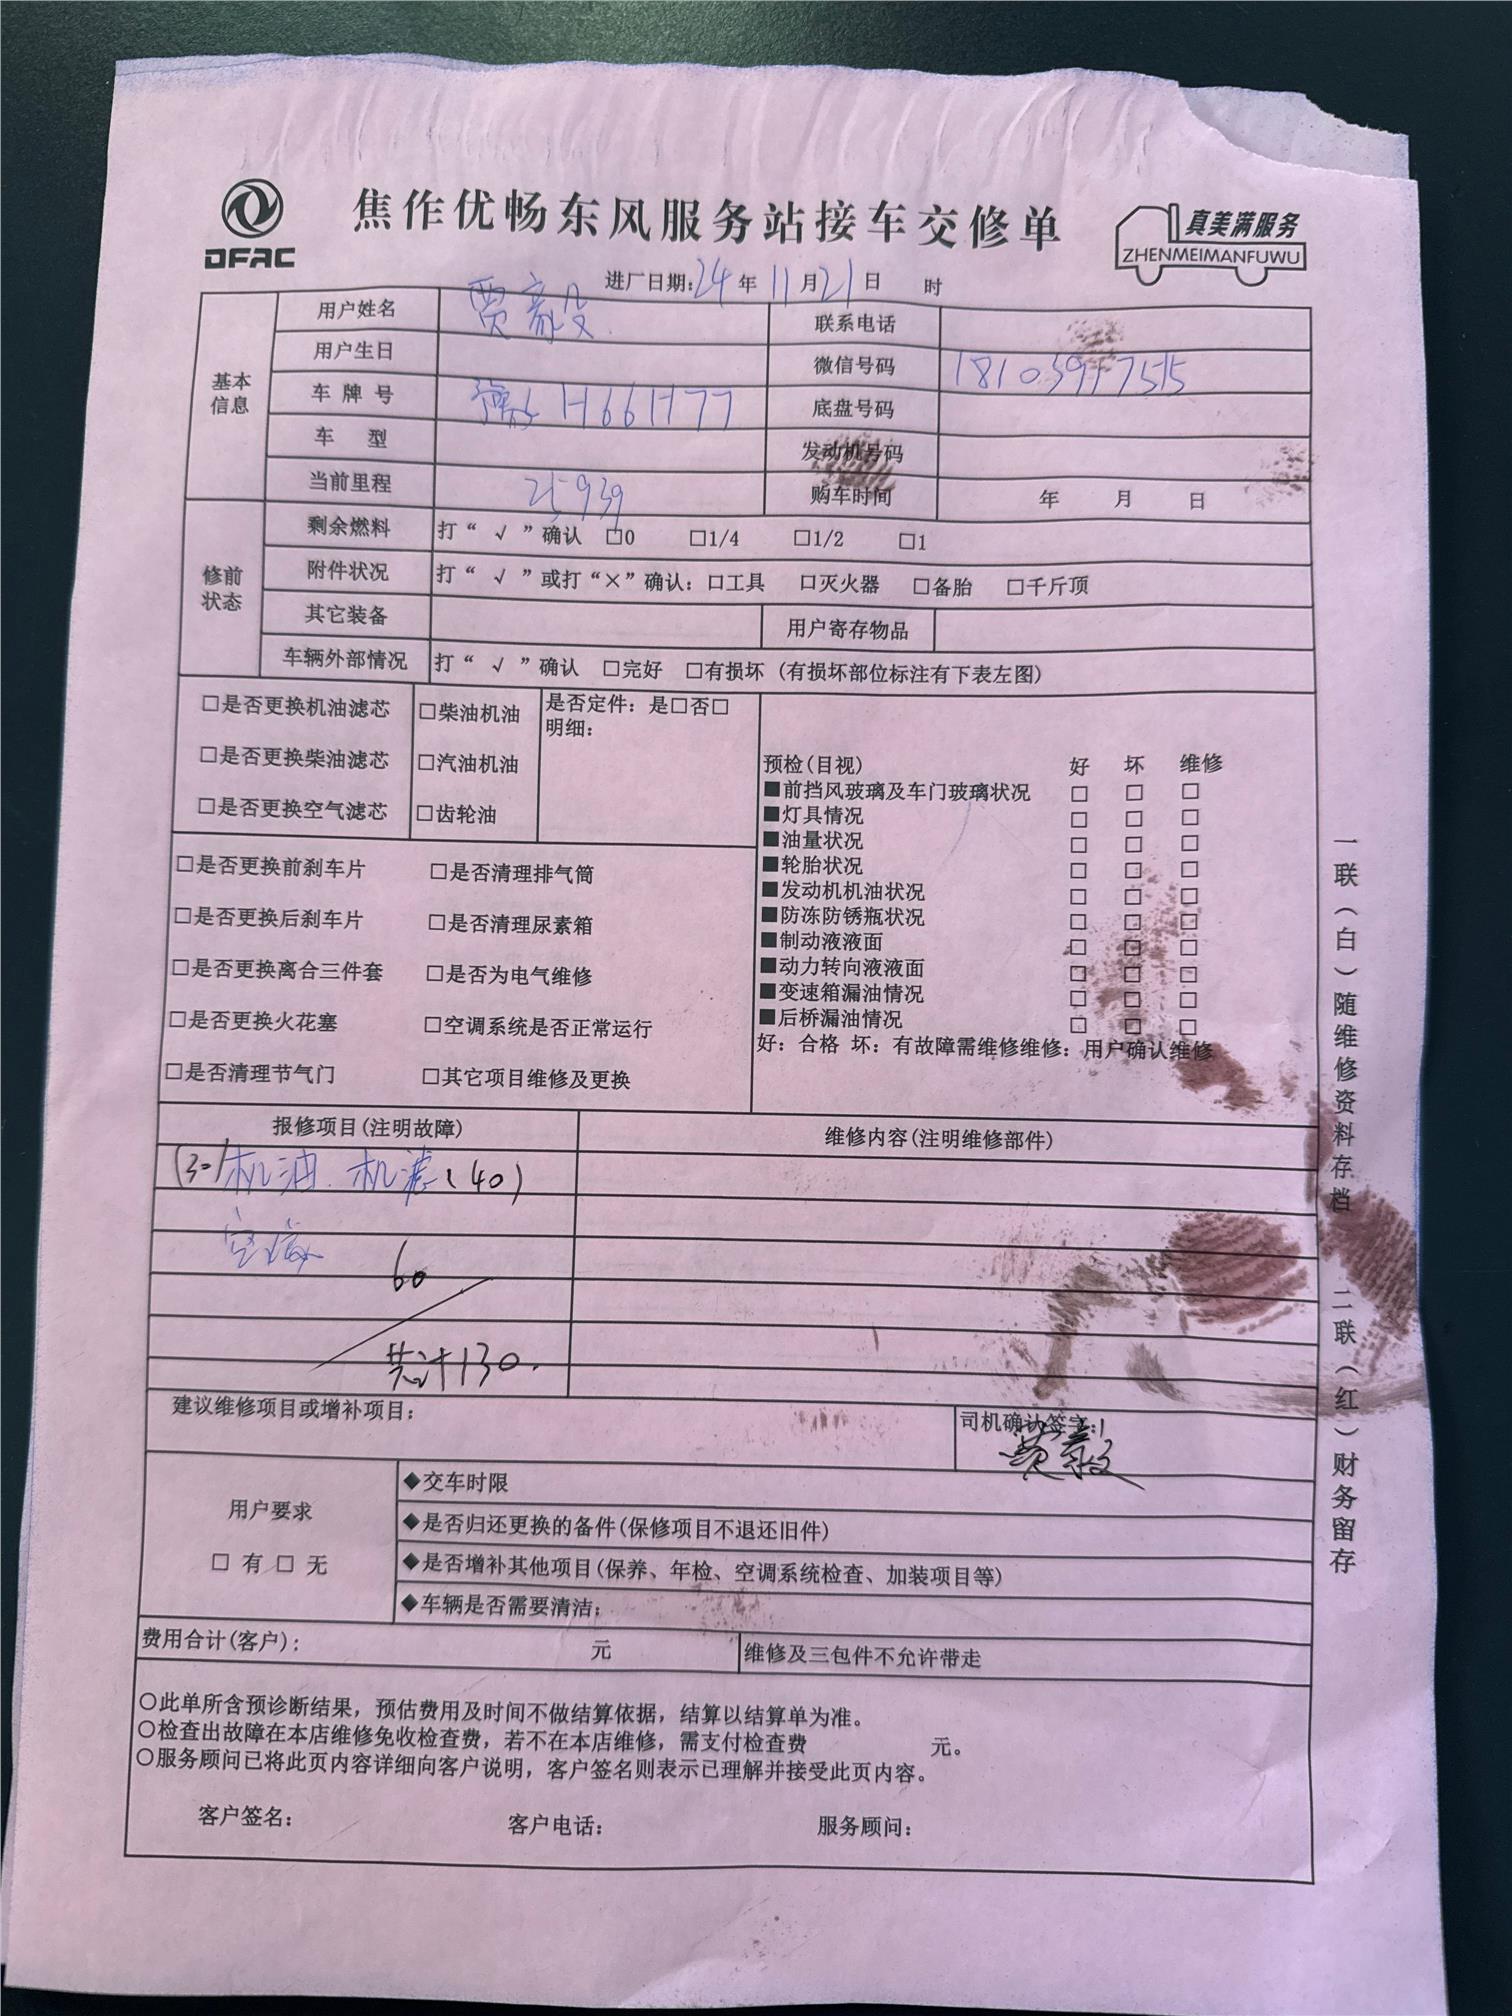 DFAC
焦作优畅东风服务站接车交修单
真美满服务
ZHENMEIMANFUWU
进厂日期:24年11月21日 时
基本信息
用户姓名 贾毅 联系电话
用户生日 微信号码 18103917515
车牌号 豫H66H77 底盘号码
车型 发动机号码
当前里程 25939 购车时间 年 月 日
修前状态
剩余燃料 打“√”确认 □0 □1/4 □1/2 □1
附件状况 打“√”或打“×”确认:□工具 □灭火器 □备胎 □千斤顶
其它装备 用户寄存物品
车辆外部情况 打“√”确认 □完好 □有损坏(有损坏部位标注有下表左图)
□是否更换机油滤芯 □柴油机油 是否定件:是□否□
明细:
□是否更换柴油滤芯 □汽油机油
□是否更换空气滤芯 □齿轮油
□是否更换前刹车片 □是否清理排气筒
□是否更换后刹车片 □是否清理尿素箱
□是否更换离合三件套 □是否为电气维修
□是否更换火花塞 □空调系统是否正常运行
□是否清理节气门 □其它项目维修及更换
预检(目视) 好 坏 维修
■前挡风玻璃及车门玻璃状况 □ □ □
■灯具情况 □ □ □
■油量状况 □ □ □
■轮胎状况 □ □ □
■发动机机油状况 □ □ □
■防冻防锈瓶状况 □ □ □
■制动液液面 □ □ □
■动力转向液液面 □ □ □
■变速箱漏油情况 □ □ □
■后桥漏油情况 □ □ □
好:合格 坏:有故障需维修维修:用户确认维修
报修项目(注明故障) 维修内容(注明维修部件)
(30)机油.机滤(40)
空滤
60
共计130.
建议维修项目或增补项目: 司机确认签字:
贾毅
用户要求
□有□无
◆交车时限
◆是否归还更换的备件(保修项目不退还旧件)
◆是否增补其他项目(保养、年检、空调系统检查、加装项目等)
◆车辆是否需要清洁:
费用合计(客户): 元 维修及三包件不允许带走
○此单所含预诊断结果,预估费用及时间不做结算依据,结算以结算单为准。
○检查出故障在本店维修免收检查费,若不在本店维修,需支付检查费 元。
○服务顾问已将此页内容详细向客户说明,客户签名则表示已理解并接受此页内容。
客户签名: 客户电话: 服务顾问:
一联(白)随维修资料存档 二联(红)财务留存